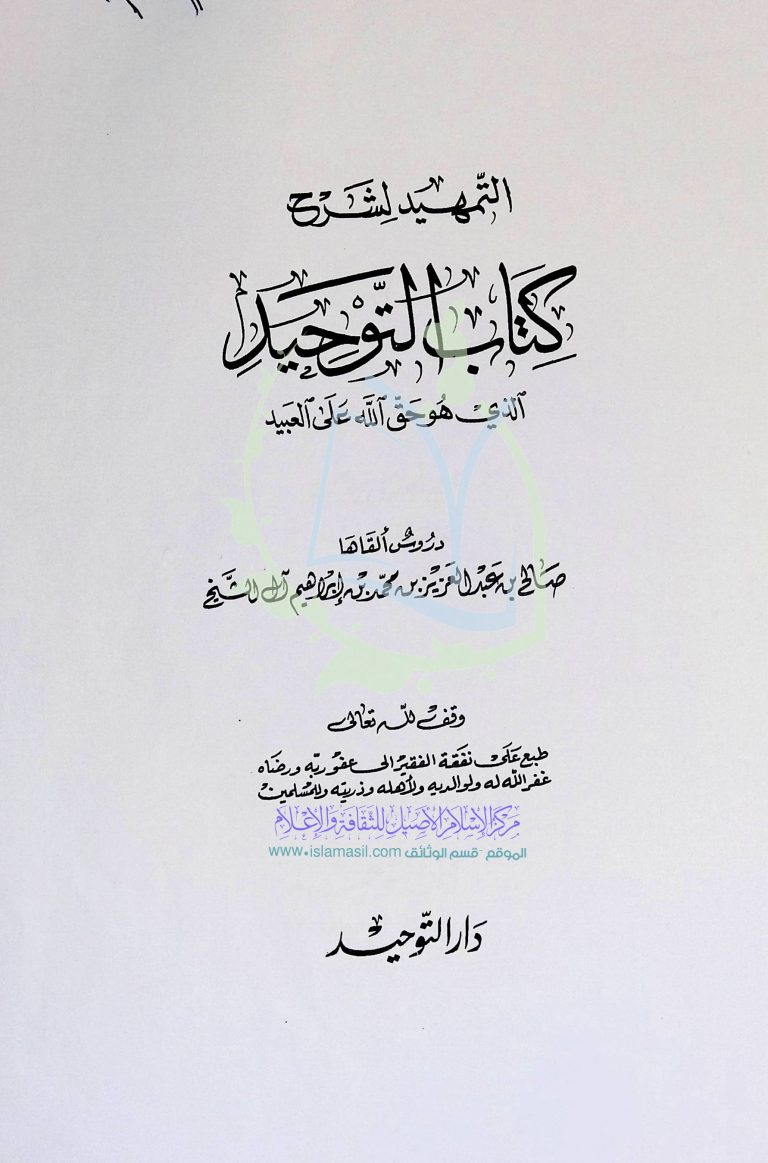 التّمهيد لِشَرح
كِتَاب التَّوْحِيدِ
الَّذِي هُوَ حَقّ اللَّه عَلَى العَبيد
دُرُوسٌ ألقَاهَا
صَالح بن عَبد العَزيز بن محمّد بن إبرَاهيم آل الشَّيخ
وقف للّه تعالى
طبع عَلَى نفَقَة الفقير الى عفو ربّه ورضَاه
غفر اللّه له ولوالديه ولأهله وذريته وللمُسلمين
مركز الإسلام الأصيل للثقافة والإعلام
الموقع - قسم الوثائق www.islamasil.com
دَار التّوحيد